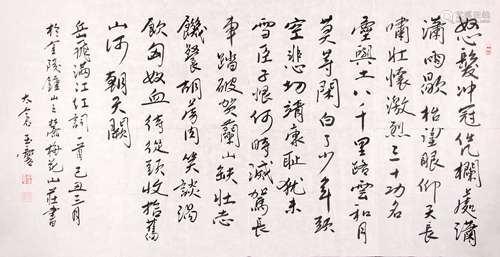 怒髮冲冠凭欄處瀟
瀟雨歇抬望眼仰天長
嘯壯懷激烈三十功名
塵與土八千里路雲和月
莫等閑白了少年頭
空悲切靖康耻犹未
雪臣子恨何時滅駕長
車踏破賀蘭山缺壯志
饑餐胡虜肉笑談渴
飲匈奴血待從頭收拾舊
山河朝天闕
岳飛滿江紅詞一首己丑三月
於金陵鐘山之麓梅花山莊書